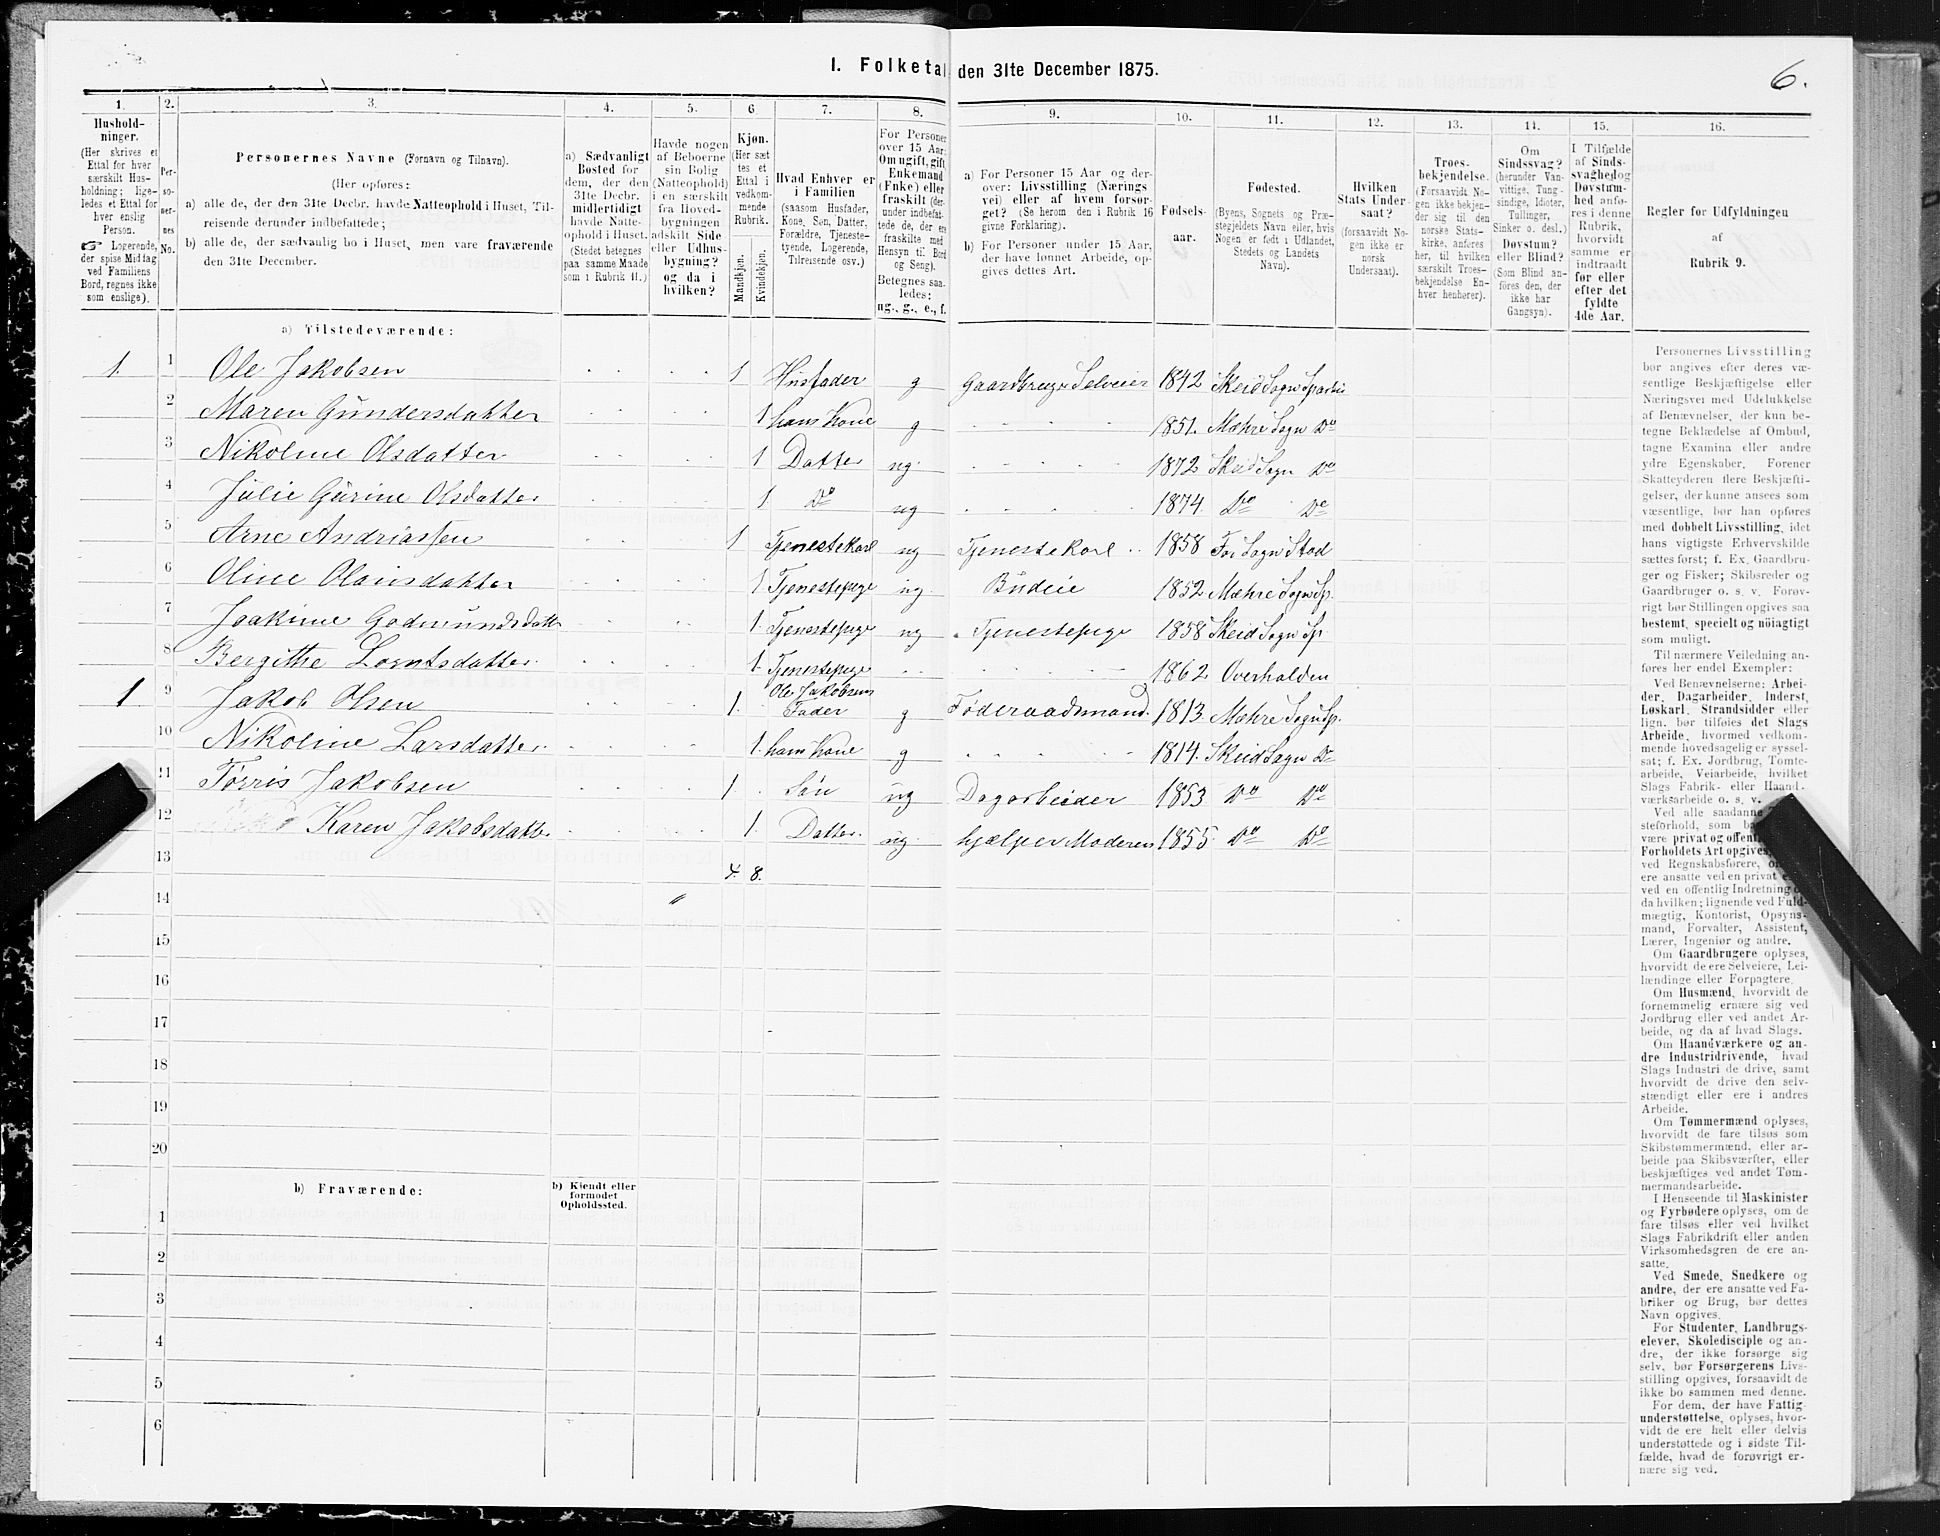 I. Folketal den 31te December 1875.
6.
1.
2.
3.
4.
5.
6.
7.
8.
9.
10.
11.
12.
13.
14.
15.
16.
Hushold-
ninger.
(Her skrives et
Ettal for hver
særskilt Hus-
holdning; lige-
ledes et Ettal for
hver enslig
Person.
☞ Logerende,
der spise Middag
ved Familiens
Bord, regnes ikke
som enslige).
Per-
so-
ner-
nes
No.
Personernes Navne (Fornavn og Tilnavn).
(Her opføres:
a) alle de, der den 31te Decbr. havde Natteophold i Huset, Til-
reisende derunder indbefattede;
b) alle de, der sædvanlig bo i Huset, men vare fraværende
den 31te December.
a) Sædvanligt
Bosted for
dem, der den
31te Decbr.
midlertidigt
havde Natte-
ophold i Huset.
(Stedet betegnes
paa samme Maade
som i Rubrik 11.)
Havde nogen
af Beboerne
sin Bolig
(Natteophold)
i en særskilt
fra Hoved-
bygningen
adskilt Side-
eller Udhus-
bygning?
og da i
hvilken?
Kjøn.
(Her sæt
tes et
Ettal i
vedkom-
mende
Rubrik.
Mandkjøn.
Kvindekjøn.
Hvad Enhver er
i Familien
(saasom Husfader,
Kone, Søn, Datter,
Forældre, Tjeneste-
tyende, Logerende,
Tilreisende osv.)
For Personer
over 15 Aar:
Om ugift, gift,
Enkemand
(Enke) eller
fraskilt (der-
under indbefat-
tede de, der ere
fraskilte med
Hensyn til Bord
og Seng).
Betegnes saa-
ledes:
ug., g., e., f.
a) For Personer 15 Aar og der-
over: Livsstilling (Nærings
vei) eller af hvem forsør-
get? (Se herom den i Rubrik 16
givne Forklaring).
b) For Personer under 15 Aar,
der have lønnet Arbeide, op-
gives dettes Art.
Fødsels-
aar.
Fødested.
(Byens, Sognets og Præ-
stegjeldets Navn eller, hvis
Nogen er født i Udlandet,
Stedets og Landets
Navn).
Hvilken
Stats Under-
saat?
(forsaavidt No-
gen ikke er
norsk
Undersaat).
Troes-
bekjendelse.
(Forsaavidt No-
gen ikke bekjen-
der sig til den
norske Stats-
kirke, anføres
her, til hvilken
særskilt Troes-
bekjendelse En-
hver henhører).
Om
Sindssvag?
(herunder Van-
vittige, Tung-
sindige, Idioter,
Tullinger,
Sinker o. desl.)
Døvstum?
eller Blind?
(Som Blind an-
føres den, der
ikke har
Gangsyn).
I Tilfælde
af Sinds-
svaghed og
Døvstum-
hed anfø-
res i denne
Rubrik,
hvorvidt
samme er
indtraadt
før eller
efter det
fyldte
4de Aar.
Regler for Udfyldningen
af
Rubrik 9.
a) Tilstedeværende:
1. 1 Ole Jakobsen 1 Husfader g Gaardbruger Selveier 1842 Skeid Sogn
2 Maren Gundersdatter 1 hans Kone g 1851. Mæhre Sogn Do
3 Nikoline Olsdatter 1 Datter ug. 1872 Skeid Sogn Do
4 Julie Gurine Olsdatter 1. Do ug 1874. Do Do
5 Arne Andriassen 1 Tjenestekarl ug Tjenestekarl 1858 For Sogn Stod
6 Oline Olausdatter 1 Tjenestepige ug. Budeie 1852 Mæhre Sogn Sp.
7 Joakime Godmundsdatt 1. Tjenestepige ug Tjenestepige 1858 Skeid Sogn Sp.
8 Bergithe Lorntsdatter. 1. Tjenestepige 1862 Overhalden
1 9 Jakob Olsen 1. Ole Jakobsens
Fader g Føderaadsmand. 1813. Mæhre Sogn Sp.
10 Nikoline Larsdatter. 1. hans Kone g 1814. Skeid Sogn Do
11 Tørris Jakobsen 1 Søn ug Dagarbeider 1853 Do Do
12 Karen Jakobsdatter 1. Datter. ug. hjælper Moderen 1855. Do Do
13 4. 8.
14 "
15
16
17
18
19
20
b) Fraværende:
b) Kjendt eller
formodet
Opholdssted.
1
2
3
4
5
6
Personernes Livsstilling
bør angives efter deres væ-
sentlige Beskjæftigelse eller
Næringsvei med Udelukkelse
af Benævnelser, der kun be-
tegne Beklædelse af Ombud,
tagne Examina eller andre
ydre Egenskaber. Forener
Skatteyderen flere Beskjæfti-
gelser, der kunne ansees som
væsentlige, bør han opføres
med dobbelt Livsstilling, idet
hans vigtigste Erhvervskilde
sættes først; f. Ex. Gaardbru-
ger og Fisker; Skibsreder og
Gaardbruger o. s. v. Forøv-
rigt bør Stillingen opgives saa
bestemt, specielt og nøiagtigt
som muligt.
Til nærmere Veiledning an-
føres her endel Exempler:
Ved Benævnelserne: Arbei-
der, Dagarbeider, Inderst,
Løskarl, Strandsidder eller
lign. bør tilføies det Slags
Arbeide, hvormed vedkom-
mende hovedsagelig er syssel-
sat; f. Ex. Jordbrug, Tomte-
arbeide, Veiarbeide, hvilket
Slags Fabrik- eller Haand-
værksarbeide o. s. v.
Ved alle saadanne
steforhold, som
være privat og
Forholdets Art opgives,
ved Regnskabsførere,
ere ansatte ved en privat
ved en offentlig Indretning
da hvilken; lignende ved Fuld-
mægtig, Kontorist, Opsyns-
mand, Forvalter, Assistent,
Lærer, Ingeniør og andre.
Om Gaardbrugere oplyses,
hvorvidt de ere Selveiere, Lei-
lændinge eller Forpagtere.
Om Husmænd, hvorvidt de
fornemmelig ernære sig ved
Jordbrug eller ved andet Ar-
beide, og da af hvad Slags.
Om Haandværkere og an-
dre Industridrivende, hvad
Slags Industri de drive, samt
hvorvidt de drive den selv-
stændigt eller ere i andres
Arbeide.
Om Tømmermænd oplyses,
hvorvidt de fare tilsøs som
Skibstømmermænd, eller ar-
beide paa Skibsværfter, eller
beskjæftiges ved andet Tøm-
mermandsarbeide.
I Henseende til Maskinister
og Fyrbødere oplyses, om de
fare tilsøs eller ved hvilket
Slags Fabrikdrift eller anden
Virksomhedsgren de ere an-
satte.
Ved Smede, Snedkere og
andre, der ere ansatte ved Fa-
briker og Brug, bør dettes
Navn opgives.
For Studenter, Landbrugs-
elever, Skoledisciple og an-
dre, der ikke forsørge sig
selv, bør Forsørgerens Livs-
stilling opgives, forsaavidt de
ikke bo sammen med denne.
For dem, der have Fattig-
understøttelse, oplyses, hvor-
vidt de ere helt eller delvis
understøttede og i sidste Til-
fælde, hvad de forøvrigt er-
nære sig ved.